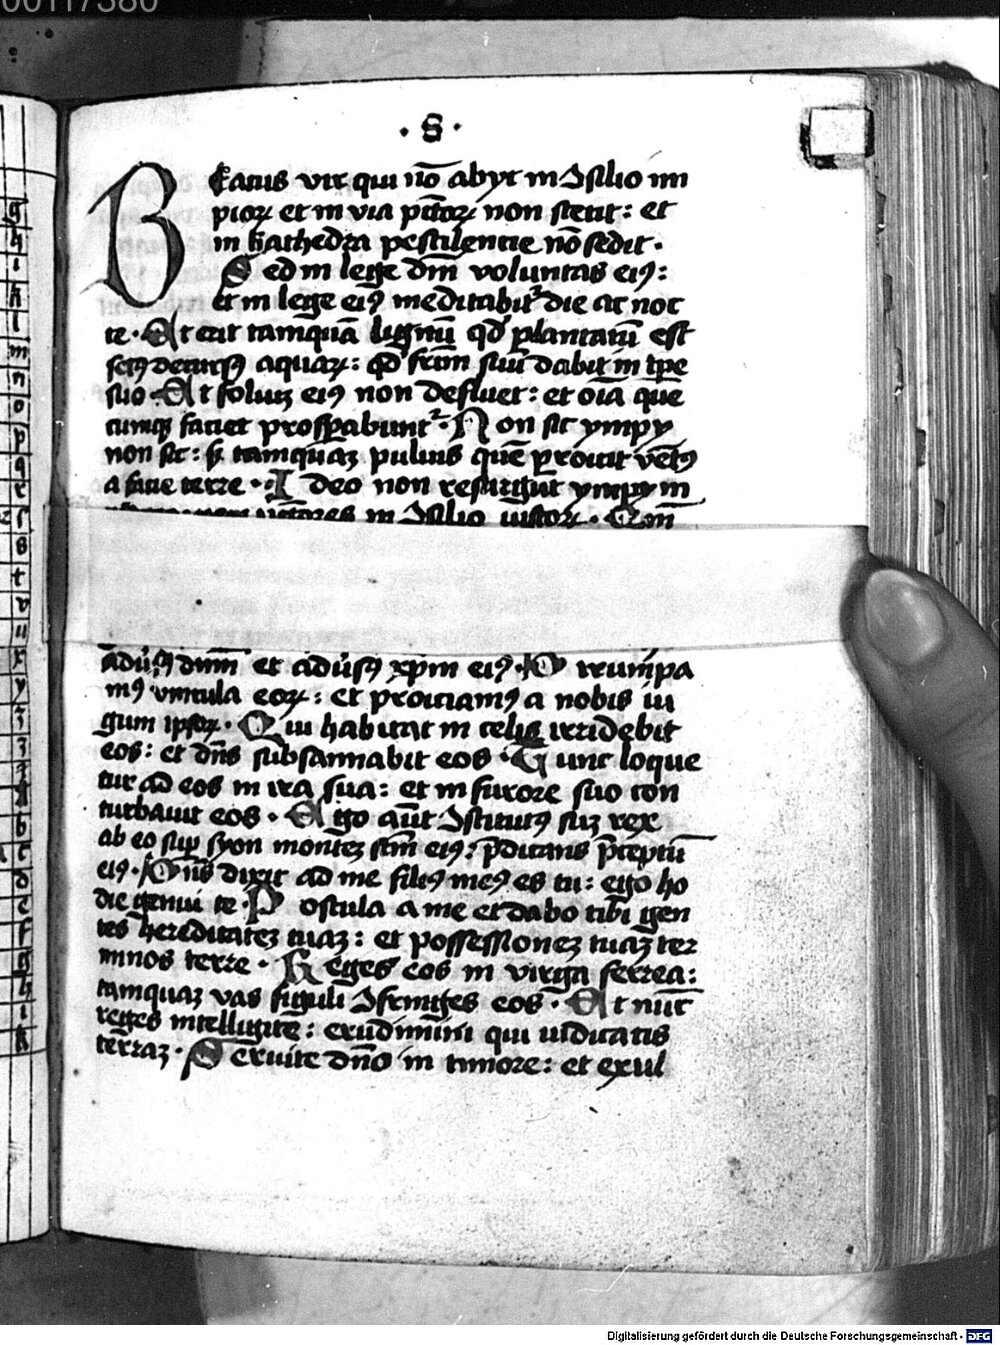 00117380
· 8 ·
Beatus vir qui nō abyt in ɔsilio im
pioꝝ et in via pctōꝝ non stetit: et
in kathedra pestilentie nō sedit.
Sed in lege dm̄ voluntas eiꝰ:
et in lege eiꝰ meditabit᷑ die ac noc
te. Et erit tamquā lignuȝ qd̄ plantatū est
secꝰ decursꝰ aquaꝝ: qd̄ fcm̄ suū dabit in tp̄e
suo. Et foliuȝ eiꝰ non defluet: et oīa quē
cumqȝ faciet prosꝑabunt᷑. Non sic ympy
non sic: sȝ tamquaȝ puluis quē ꝓicit vētꝰ
a facie terre. Ideo non resurgūt ympy in
ɔsilio iustoꝝ.
adūsꝰ dnm̄ et adūsꝰ xp̄m eiꝰ. Dirumpa
mꝰ vincula eoꝝ: et proiciamꝰ a nobis iu
gum ipsoꝝ. Qui habitat in celis irridebit
eos: et dn̄s subsannabit eos. Tunc loque
tur ad eos in ira sua: et in furore suo con
turbauit eos. Ego aūt ɔstitutꝰ suȝ rex
ab eo suꝑ syon monteȝ scm̄ eiꝰ: p̄dicans p̄ceptū
eiꝰ. Dn̄s dixit ad me filiꝰ meꝰ es tu: ego ho
die genui te. Postula a me et dabo tibi gen
tes hereditateȝ tuaȝ: et possessioneȝ tuaȝ ter
minos terre. Reges eos in virga ferrea:
tamquaȝ vas figuli ɔfringes eos. Et nūc
reges intelligite: erudimini qui iudicatis
terraȝ. Seruite dn̄o in timore: et exul
Digitalisierung gefördert durch die Deutsche Forschungsgemeinschaft - DFG